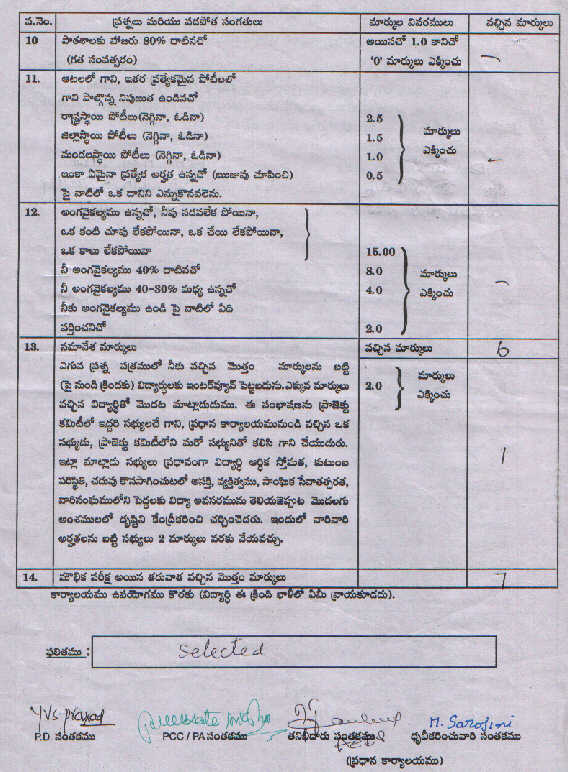 ప.నెం. ప్రశ్నలు మరియు పదపోత సంగతులు మార్కుల వివరములు వచ్చిన మార్కులు
10 పాఠశాలకు హాజరు 80% దాటినచో అయినచో 1.0 కానిచో
(గత సంవత్సరం) '0' మార్కులు ఎక్కించు –
11. ఆటలలో గాని, ఇతర ప్రత్యేకమైన పోటీలలో
గాని పాల్గొన్న నిపుణుత ఉండినచో
రాష్ట్రస్థాయి పోటీలు(నెగ్గినా, ఓడినా) 2.5
జిల్లాస్థాయి పోటీలు (నెగ్గినా, ఓడినా) 1.5 మార్కులు
మండలస్థాయి పోటీలు (నెగ్గినా, ఓడినా) 1.0 ఎక్కించు –
ఇంకా ఏమైనా ప్రత్యేక అర్హత ఉన్నచో (ఋజువు చూపించి) 0.5
పై వాటిలో ఒక దానిని ఎన్నుకొనవలెను.
12. అంగవైకల్యము ఉన్నచో, నీవు నడవలేక పోయినా,
ఒక కంటి చూపు లేకపోయినా, ఒక చేయి లేకపోయినా,
ఒక కాలు లేకపోయినా 15.00
నీ అంగవైకల్యము 40% దాటినచో 8.0 మార్కులు
నీ అంగవైకల్యము 40-30% మధ్య ఉన్నచో 4.0 ఎక్కించు –
నీకు అంగవైకల్యము ఉండి పై వాటిలో ఏది
వర్తించనిచో 2.0
13. సమావేశ మార్కులు వచ్చిన మార్కులు 6
ఎగువ ప్రశ్న పత్రములో నీకు వచ్చిన మొత్తం మార్కులను బట్టి మార్కులు
(పై నుండి క్రిందకు) విద్యార్థులకు ఇంటర్‌వ్యూన్ పెట్టబడును.ఎక్కువ మార్కులు 2.0 ఎక్కించు
వచ్చిన విద్యార్థితో మొదట మాట్లాడుదుము. ఈ సంభాషణను ప్రాజెక్టు
కమిటీలో ఇద్దరి సభ్యులచే గాని, ప్రధాన కార్యాలయమునుండి వచ్చిన ఒక
సభ్యుడు, ప్రాజెక్టు కమిటీలోని మరో సభ్యునితో కలిసి గాని చేయుదురు.
ఇట్లా మాట్లాడు సభ్యులు ప్రధానంగా విద్యార్థి ఆర్థిక స్తోమత, కుటుంబ 1
పరిస్థితి, చదువు కొనసాగించుటలో ఆసక్తి, వ్యక్తిత్వము, సాంఘిక సేవాతత్పరత,
వారిసంఘములోని పెద్దలకు విద్యా అవసరమును తెలియజెప్పుట మొదలగు
అంశములలో దృష్టిని కేంద్రీకరించి చర్చించెదరు. ఇందులో వారివారి
అర్హతలను బట్టి సభ్యులు 2 మార్కులు వరకు వేయవచ్చు.
14. మౌఖిక పరీక్ష అయిన తరువాత వచ్చిన మొత్తం మార్కులు 7
కార్యాలయము ఉపయోగము కొరకు (విద్యార్థి ఈ క్రింది ఖాళీలో ఏమీ వ్రాయకూడదు).
ఫలితము : Selected
YVS Prasad M. Sarojini
P.D సంతకము PCC / PA సంతకము తనిఖీదారు సంతకము ధృవీకరించువారి సంతకము
(ప్రధాన కార్యాలయము)